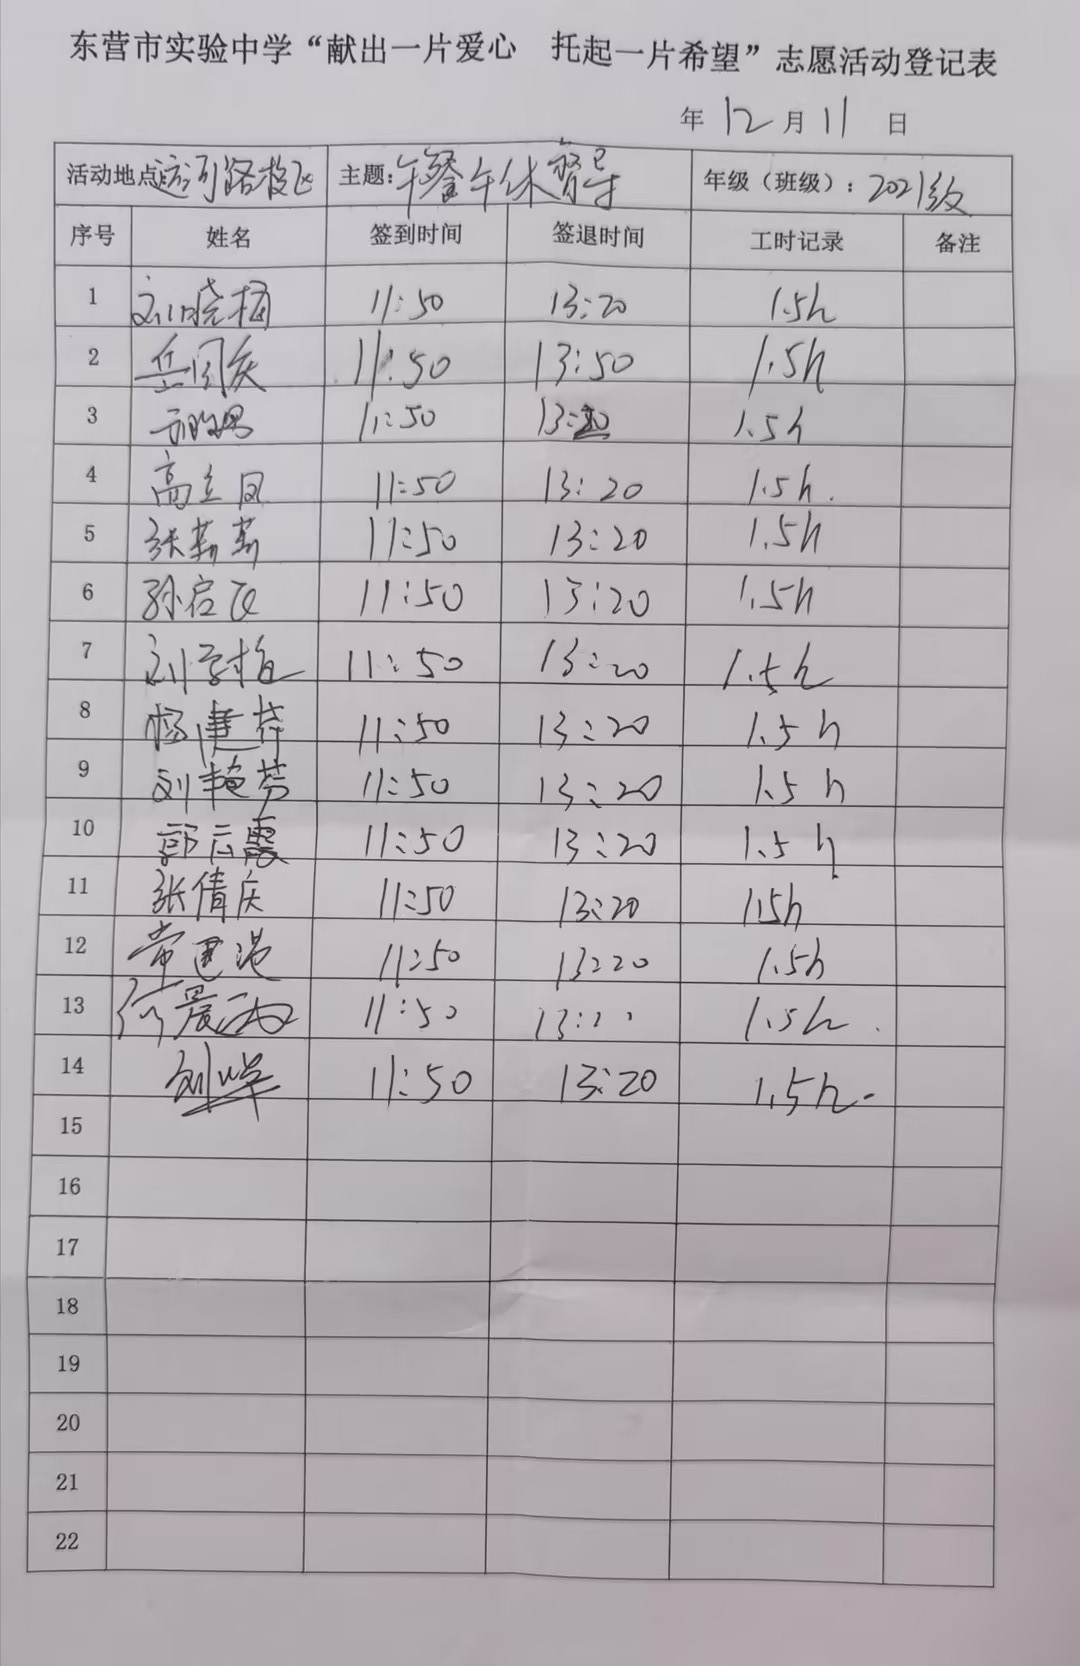 东营市实验中学“献出一片爱心 托起一片希望”志愿活动登记表
年 12 月 11 日
活动地点 路校区 主题:午餐午休督导 年级（班级）: 2021级
序号 姓名 签到时间 签退时间 工时记录 备注
1 刘晓梅 11:50 13:20 1.5h
2 岳国庆 11:50 13:50 1.5h
3 11:50 1.5h
4 高立凤 11:50 13:20 1.5h.
5 张燕燕 11:50 13:20 1.5h
6 孙启飞 11:50 13:20 1.5h
7 刘学梅 11:50 13:20 1.5h
8 杨建萍 11:50 13:20 1.5h
9 刘艳芳 11:50 13:20 1.5h
10 郭云霞 11:50 13:20 1.5h
11 张倩庆 11:50 13:20 1.5h
12 常建港 11:50 13:20 1.5h
13 11:50 1.5h.
14 11:50 13:20 1.5h.
15
16
17
18
19
20
21
22